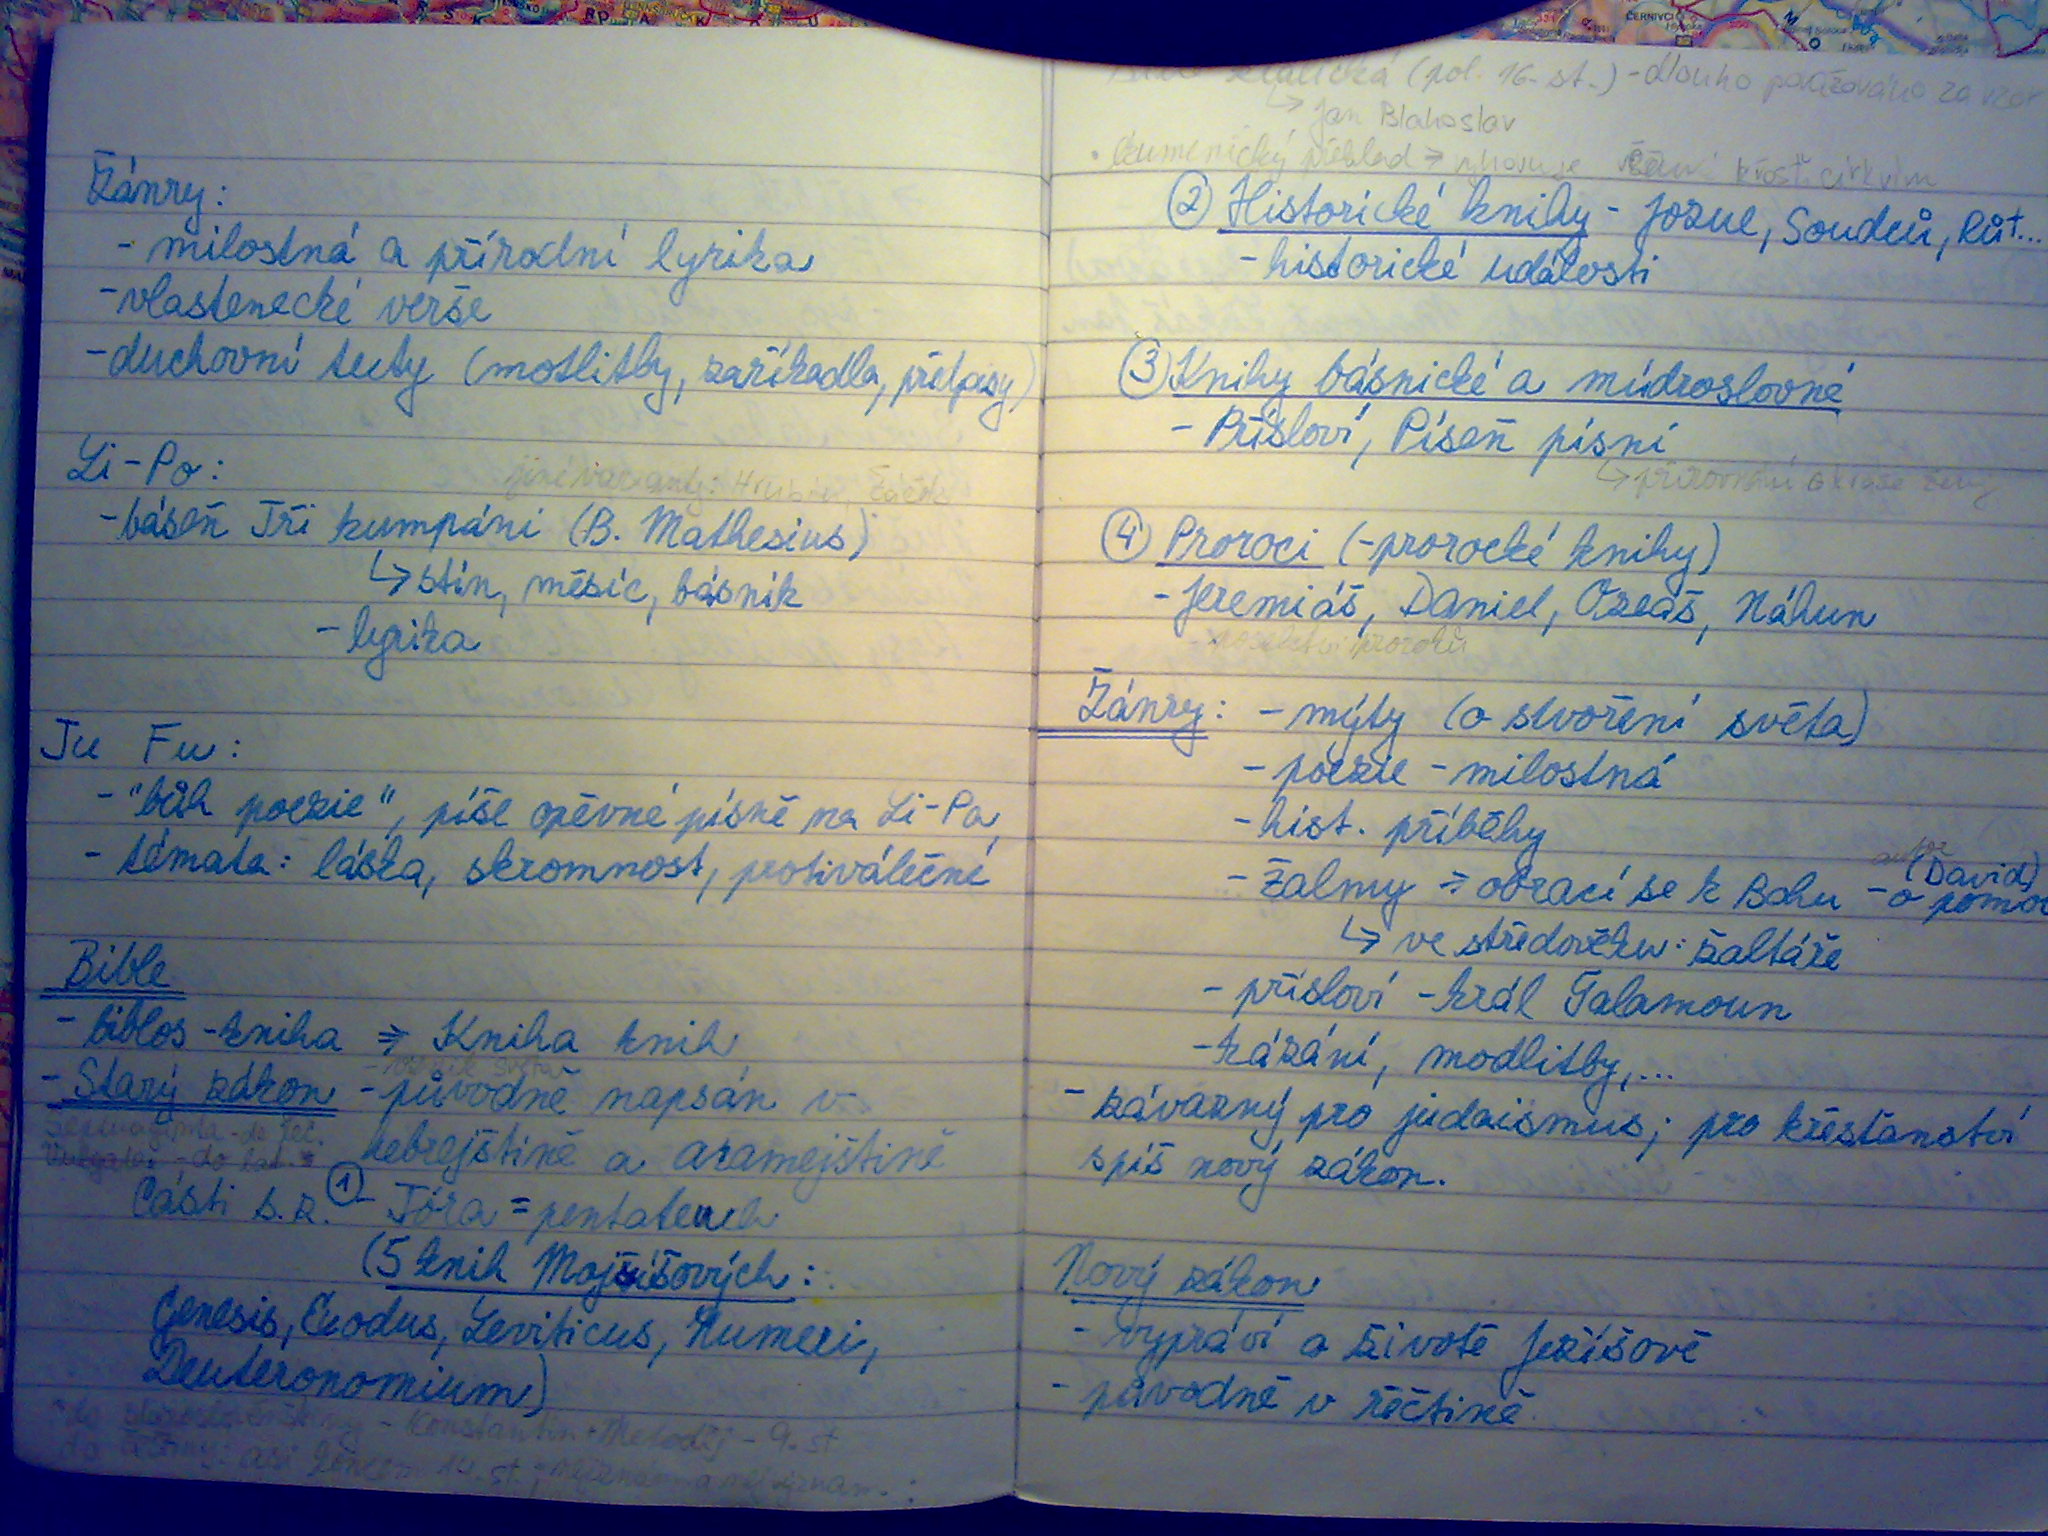 Žánry:
- milostná a přírodní lyrika
- vlastenecké verše
- duchovní texty (motlitby, zaříkadla, předpisy)
Li-Po:
jiné varianty: Hrubín,
- báseň Tři kumpáni (B. Mathesius)
↳ stín, měsíc, básník
- lyrika
Tu Fu:
- "bůh poezie", píše opěvné písně na Li-Po,
- témata: láska, skromnost, protiválečné
Bible
- biblos - kniha => Kniha knih
- Starý zákon - původně napsán v
Septuaginta - do řeč.
hebrejštině a aramejštině
Vulgata - do lat.
Části s.z. ① - Tóra = pentateuch
(5 knih Mojžíšových:
Genesis, Exodus, Leviticus, Numeri,
Deuteronomium)
do staroslověnštiny - Konstantin + Metoděj - 9. st
do češtiny: asi koncem 14. st.
kralická (pol. 16. st.) - dlouho považováno za vzor
↳ Jan Blahoslav
• Ekumenický překlad => vyhovuje všem křesť. církvím
② Historické knihy - Jozue, Soudců, Růt...
- historické události
③ Knihy básnické a múdroslovné
- Přísloví, Píseň písní
↳ přirovnání o kráse ženy
④ Proroci (-prorocké knihy)
- Jeremiáš, Daniel, Ozeáš, Náhun
- poselství proroků
Žánry: - mýty (o stvoření světa)
- poezie - milostná
- hist. příběhy
autor
(David)
- žalmy => obrací se k Bohu - o pomoc
↳ ve středověku: žaltáře
- přísloví - král Šalamoun
- kázání, modlitby,...
- závazný pro judaismus; pro křesťanství
spíš nový zákon.
Nový zákon
- vypráví o životě Ježíšově
- původně v řečtině